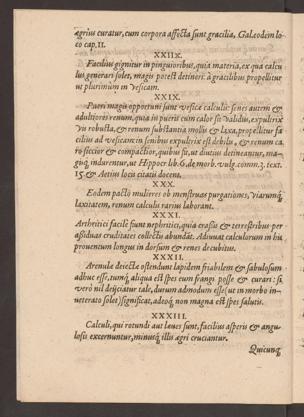 ægrius curatur, cum corpora affecta sunt gracilia, Gal. eodem lo-
co cap. 11.
XXIIX.
Facilius gignitur in pinguioribus, quia materia, ex qua calcu
lus generari solet, magis potest detineri: à gracilibus propellitur
ut plurimùm in vesicam.
XXIX.
Pueri magis opportuni sunt vesicæ calculis: senes autem &
adultiores renum, quia in pueris cum calor sit validus, expultrix
vis robusta, & renum substantia mollis & laxa, propellitur fa
cilius ad vesicam: in senibus expultrix est debilis, & renum ca
ro siccior & compactior, quibus fit, ut diutius detineantur, ma-
gisq́ indurentur, ut Hippocr. lib. 6. de morb. vulg. comm. 3. text.
15. & Aetius locis citatis docent.
XXX.
Eodem pacto mulieres ob menstruas purgationes, viarumq́
laxitatem, renum calculis rariùs laborant.
XXXI.
Arthritici facilè fiunt nephritici, quia crasis & terrestribus per
assiduas cruditates collectis abundāt. Adiuuat calculorum in his
prouentum longus in dorsum & renes decubitus.
XXXII.
Arenulæ deiectæ ostendunt lapidem friabilem & sabulosum
adhuc esse, tumq́ aliqua est spes eum frangi posse & curari: si
verò nil deijciatur tale, durum admodum esse (ut in morbo in-
ueterato solet) significat, adeoq́ non magna est spes salutis.
XXXIII.
Calculi, qui rotundi aut læues sunt, facilius asperis & angu-
losis excernuntur, minusq́ illis ægri cruciantur.
Quicunq́